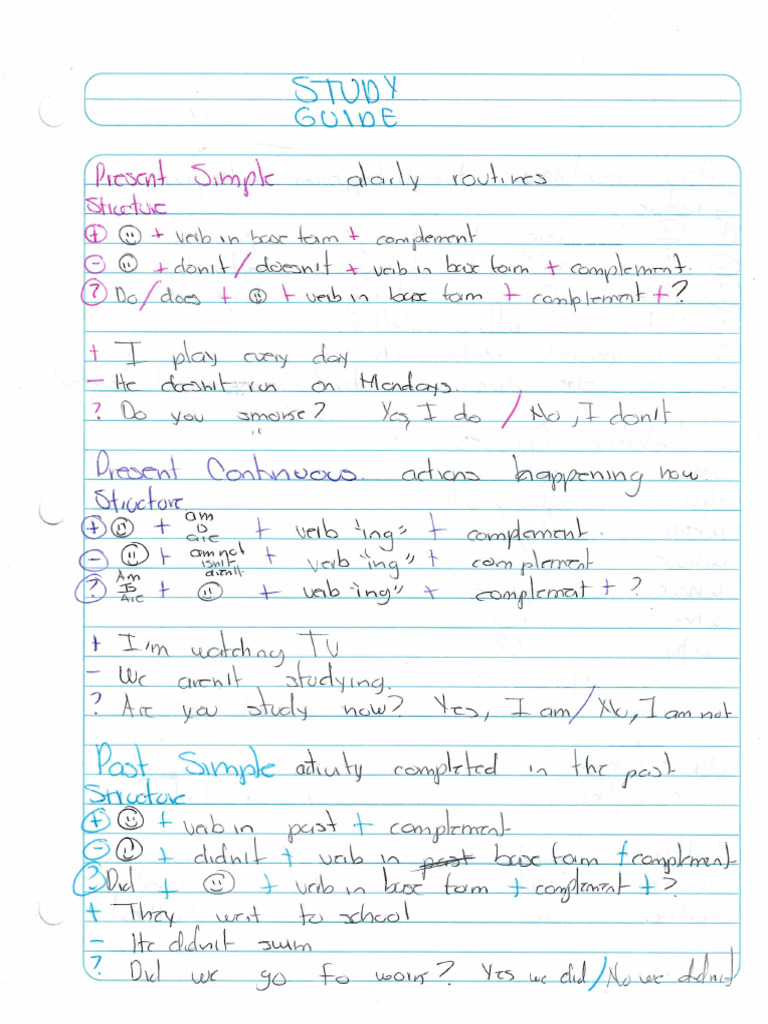 STUDY
GUIDE
Present Simple daily routines
Structure
+ ☺ + verb in base form + complement
- ☺ + don't / doesn't + verb in base form + complement.
? Do/does + ☺ + verb in base form + complement + ?
+ I play every day
- He doesn't run on Mondays.
? Do you smoke? Yes, I do / No, I don't
Present Continuous actions happening now
Structure
+ ☺ + am is are + verb "ing" + complement.
- ☺ + am not isn't + verb "ing" + complement
? Am Is Are + ☺ + verb "ing" + complement + ?
+ I'm watching TV
- We aren't studying.
? Are you study now? Yes, I am / No, I am not
Past Simple activity completed in the past
Structure
+ ☺ + verb in past + complement
- ☺ + didn't + verb in past base form + complement
? Did + ☺ + verb in base form + complement + ?
+ They went to school
- He didn't swim
? Did we go to work? Yes we did / No we didn't